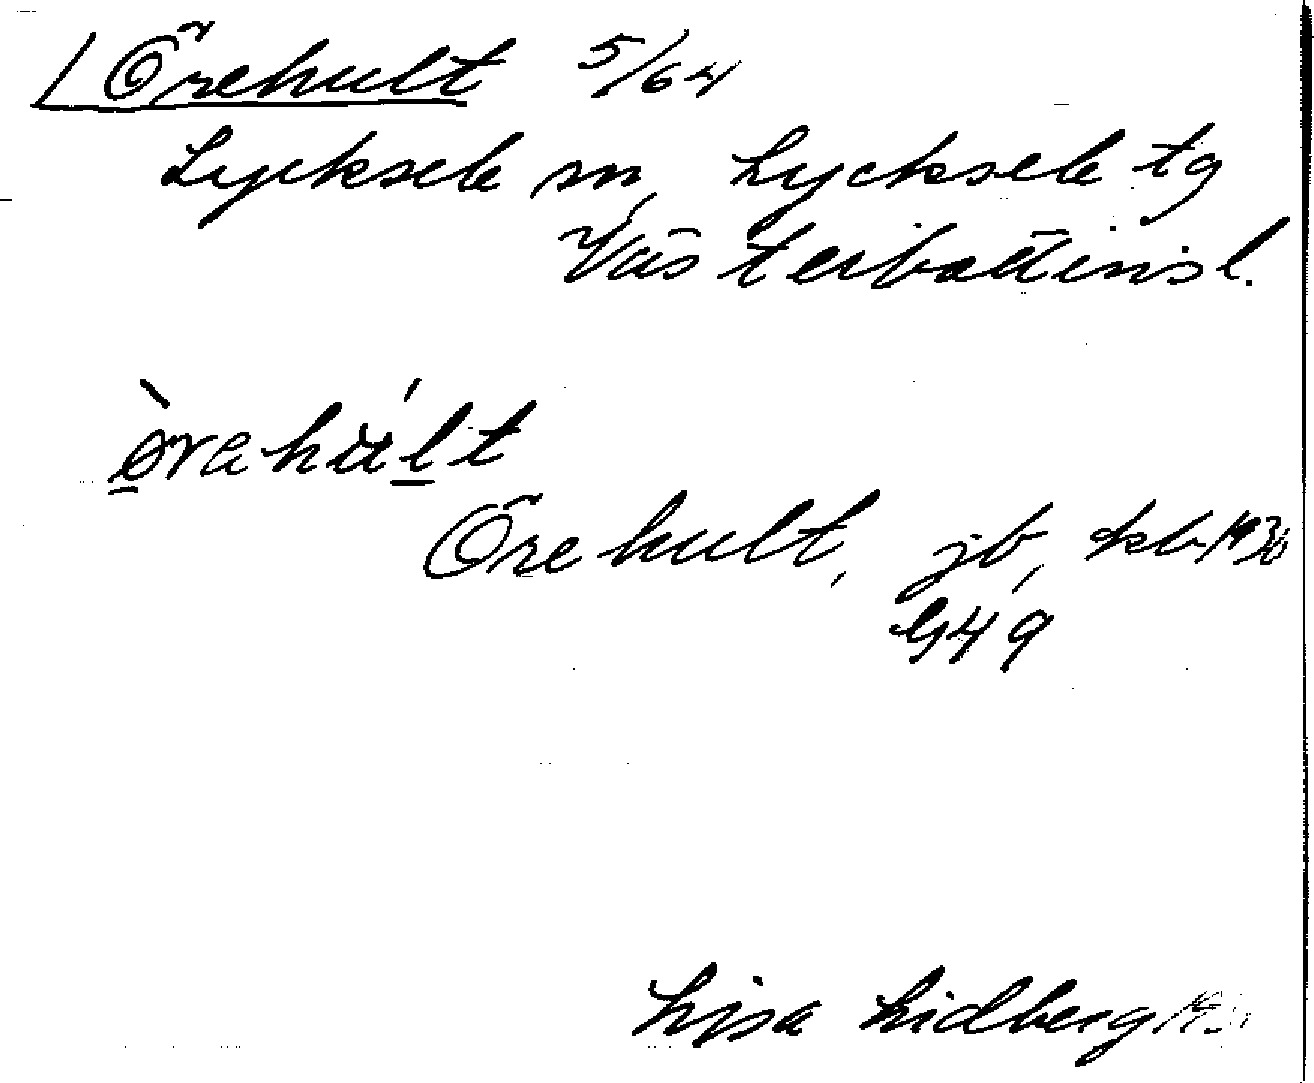 Örehult 5/64
Lycksele sn, Lycksele tg
Västerbottens l.
ö̀rahúlt
Örehult, jb, kb 1930
G49
Lisa Lidberg